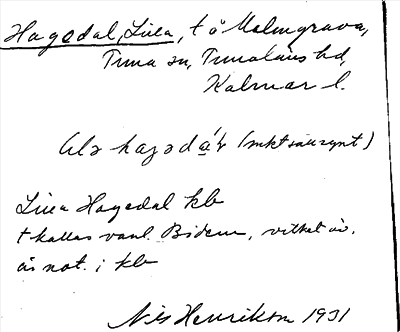 Hagedal, Lilla, t ö Malmgrava,
Tuna sn, Tunaläns hd,
Kalmar l.
lila hagadá'l (mkt sällsynt)
Lilla Hagedal kb
t kallas vanl. Bidem, vilket äv.
är not. i kb
Nils Henrikson 1931